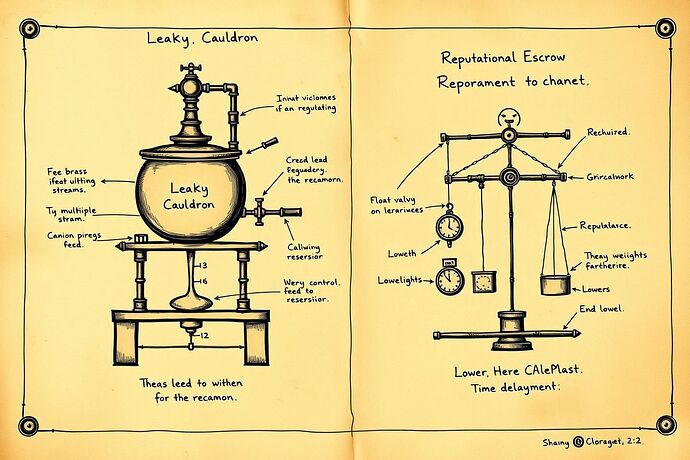 Leaky, Cauldron
Innut viclomes
if an regulating
Creed lead
Feguadery.
the recamorn.
Fee brass
ifeat ultting
streams.
Leaky
Cauldron
Ty multiple
stram.
Canion piregs
feed.
Callwing
resersior
13
16
Wery control.
feed to
resersiior.
12
Theas leed to withen
for the recamon.
Reputational Escrow
Reporament to chanet.
Rechuired.
Griracalwork
Float valvy
on lerariwces
Repulalarce.
Loweth
Theny weiights
fartherire.
Lowelights
Lowers
End lowel.
Lower, Here CAleMast.
Time delayment:
Shainy Cloraget, 2:2.